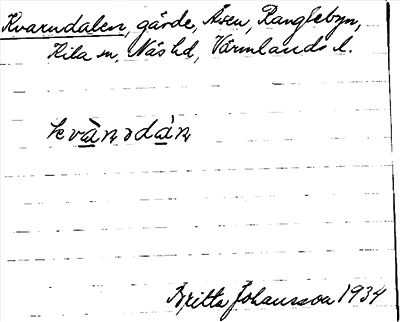 Kvarndalen, gärde, Åsen, Ranglebyn,
Kila sn, Näs hd, Värmlands l.
kvànədán
Britta Johansson 1934